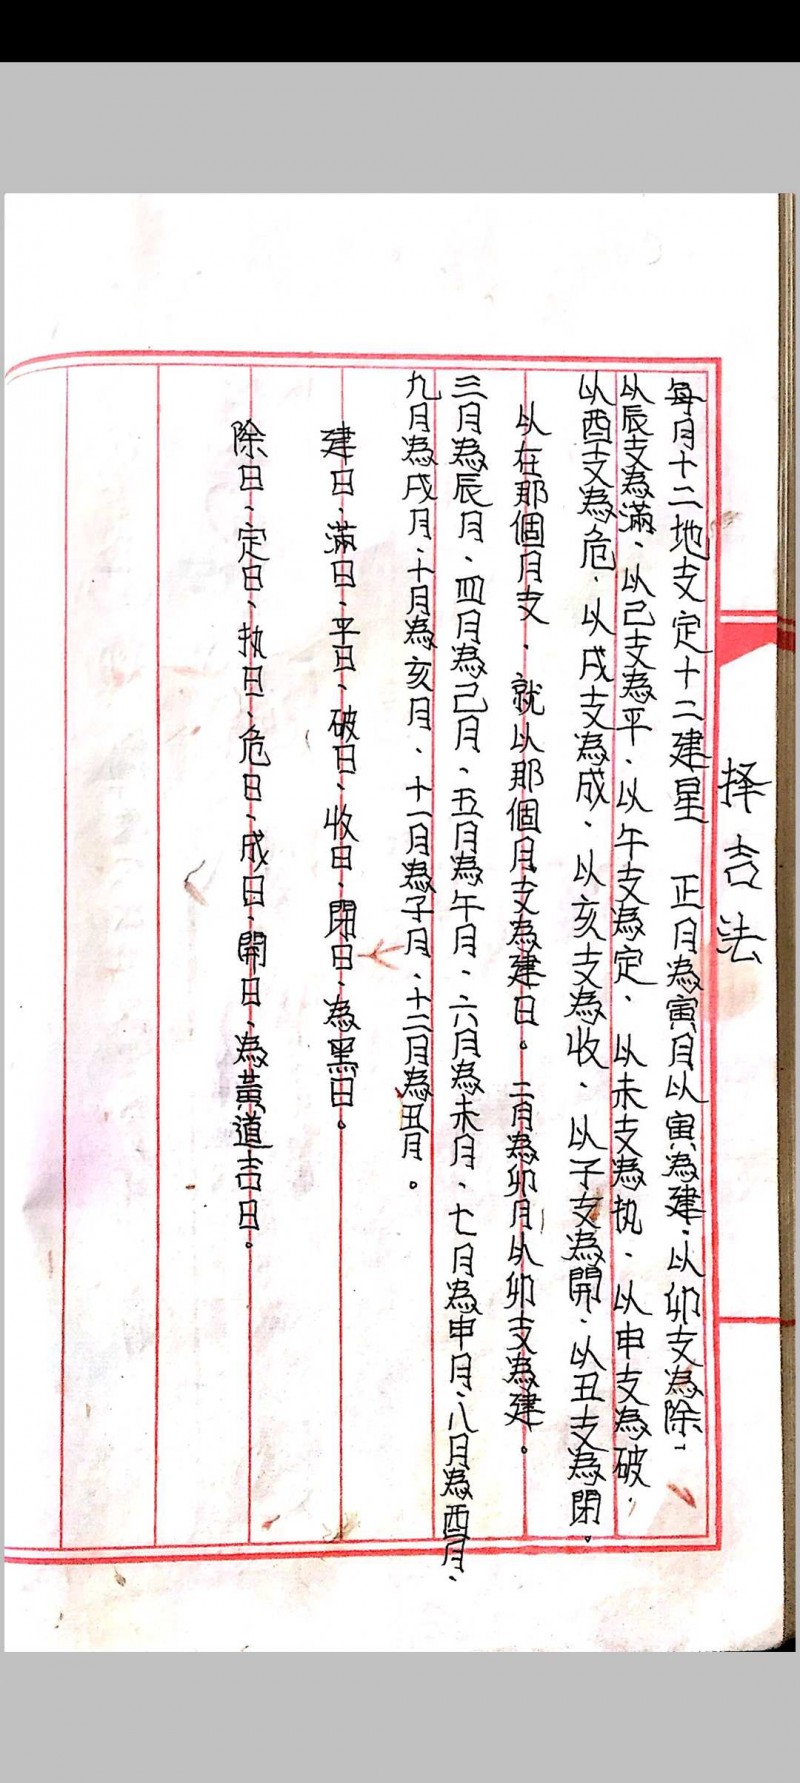 择吉法
每月十二地支定十二建星　正月為寅月以寅為建、以卯支為除、
以辰支為滿、以己支為平、以午支為定、以未支為执、以申支為破、
以酉支為危、以戌支為成、以亥支為收、以子支為開、以丑支為閉。
以在那個月支、就以那個月支為建日。二月為卯月以卯支為建。
三月為辰月、四月為己月、五月為午月、六月為未月、七月為申月、八月為酉月、
九月為戌月、十月為亥月、十一月為子月、十二月為丑月。
建日、滿日、平日、破日、收日、閉日、為黑日。
除日、定日、执日、危日、成日、開日、為黃道吉日。